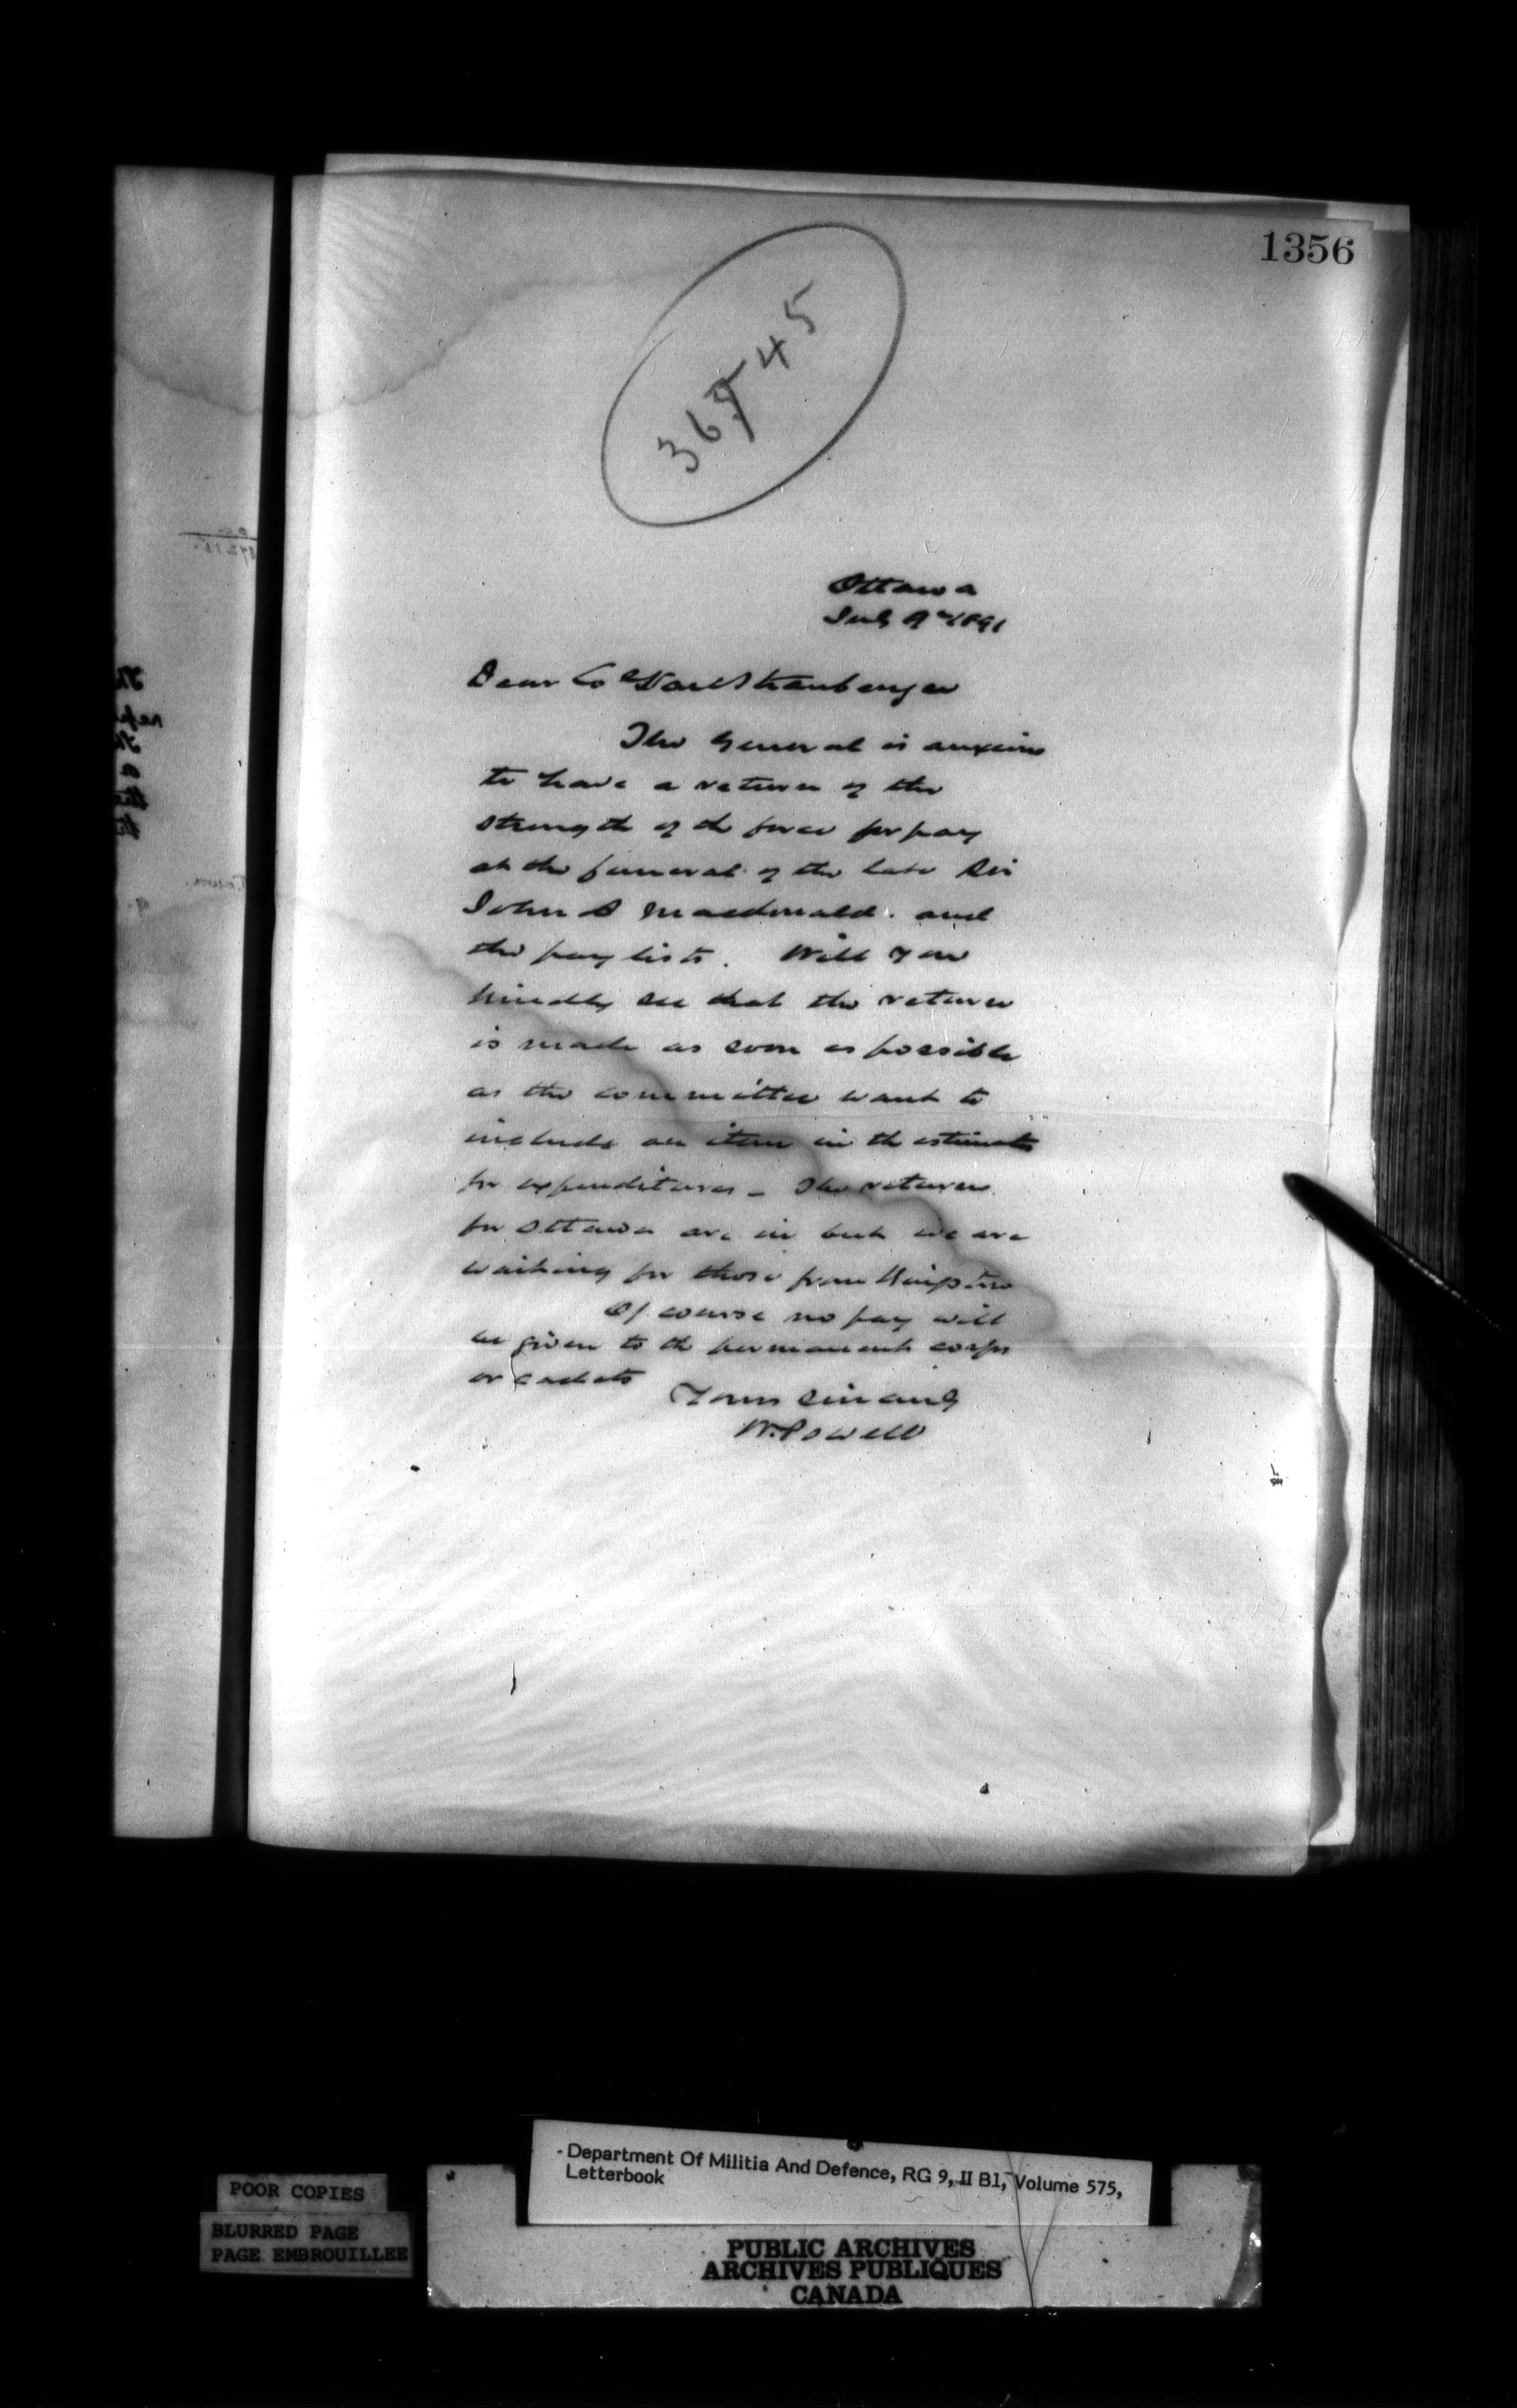 1356
Ottawa
July 9th 1891
Dear Col Van Straubenzee
The General is anxious
to have a return of the
strength of the force for pay
at the funeral of the late Sir
John A Macdonald. and
the pay lists. Will you
kindly see that the return
is made as soon as possible
as the committee want to
include an item in the estimates
for expenditures - The returns
for Ottawa are in but we are
waiting for those from Kingston
Of course no pay will
be given to the permanent corps
or cadets
Yours sincerely
W. Powell
Department Of Militia And Defence, RG 9, II B1, Volume 575,
Letterbook
POOR COPIES
BLURRED PAGE
PAGE EMBROUILLEE
PUBLIC ARCHIVES
ARCHIVES PUBLIQUES
CANADA